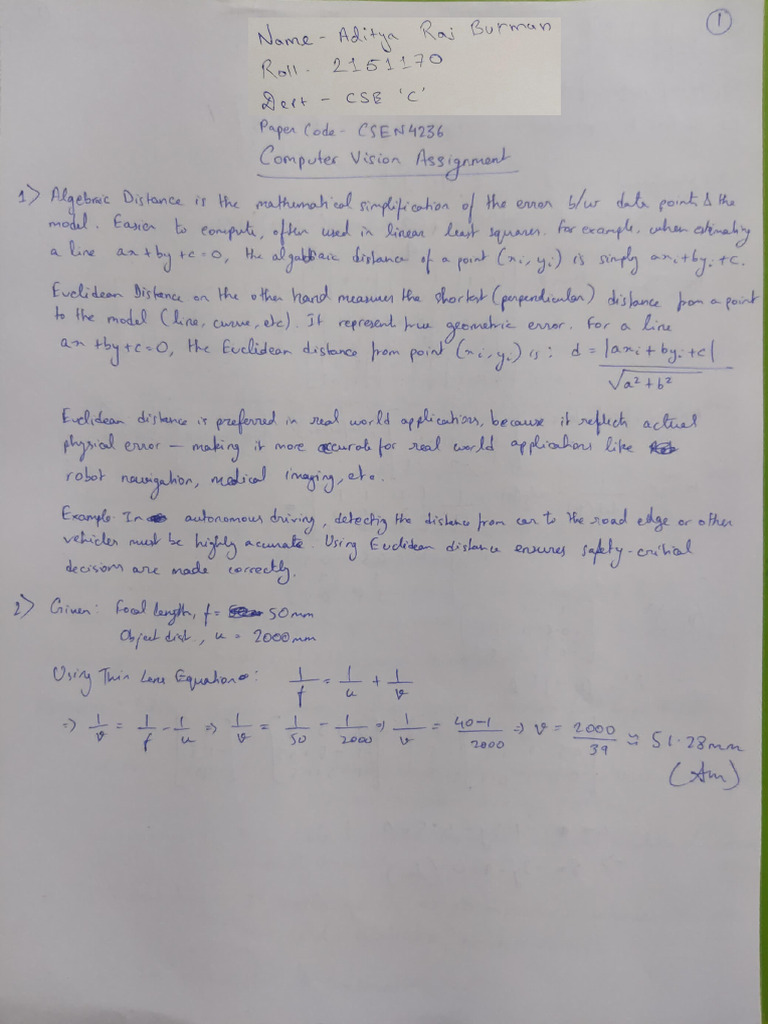 1
Name - Aditya Raj Burman
Roll. 2151170
Dept - CSE 'C'
Paper Code - CSEN4236
Computer Vision Assignment
1) Algebraic Distance is the mathematical simplification of the error b/w data points & the
model. Easier to compute, often used in linear least squares. For example, when estimating
a line ax + by + c = 0, the algebraic distance of a point (xi, yi) is simply axi + byi + c.
Euclidean Distance on the other hand measures the shortest (perpendicular) distance from a point
to the model (line, curve, etc). It represent true geometric error. For a line
ax + by + c = 0, the Euclidean distance from point (xi, yi) is: d = |axi + byi + c| / √a² + b²
Euclidean distance is preferred in real world applications, because it reflects actual
physical error — making it more accurate for real world applications like
robot navigation, medical imaging, etc.
Example: In autonomous driving, detecting the distance from car to the road edge or other
vehicles must be highly accurate. Using Euclidean distance ensures safety-critical
decisions are made correctly.
2) Given: Focal length, f = 50mm
Object dist, u = 2000mm
Using Thin Lens Equation: 1/f = 1/u + 1/v
⇒ 1/v = 1/f - 1/u ⇒ 1/v = 1/50 - 1/2000 ⇒ 1/v = 40-1/2000 ⇒ v = 2000/39 ≈ 51.28mm
(Ans)